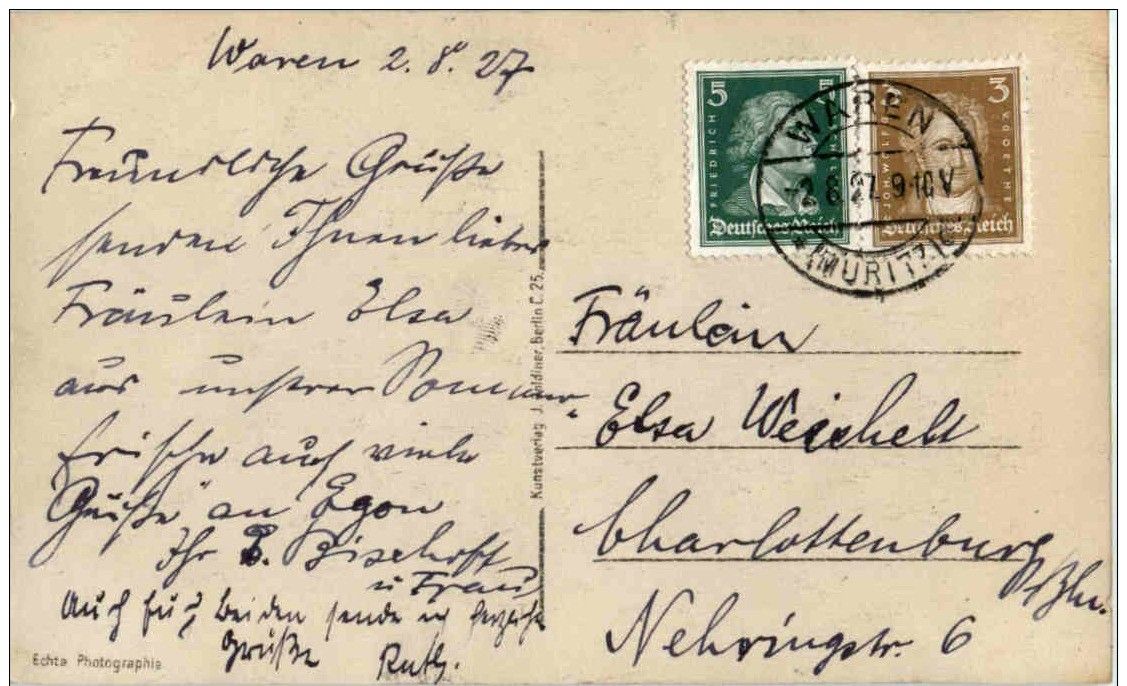 Waren 2.8.27
Freundliche Grüße
senden Ihnen liebes
Fräulein Elsa
aus unsrer Sommer„
frische auch viele
Grüße an Egon
Ihr B. Bischoff
u Frau
Auch Euch beiden sende ich herzliche
Grüße Ruth.
Echte Photographie
Kunstverlag J. Goldiner, Berlin C. 25.
5
FRIEDRICH
Deutsches Reich
3
JOH. WOLFG. V. GOETHE
Deutsches Reich
WAREN
-2.8.27.9-10V
*(MÜRITZ)c
Fräulein
Elsa Weichelt
Charlottenburg
Nehringstr. 6